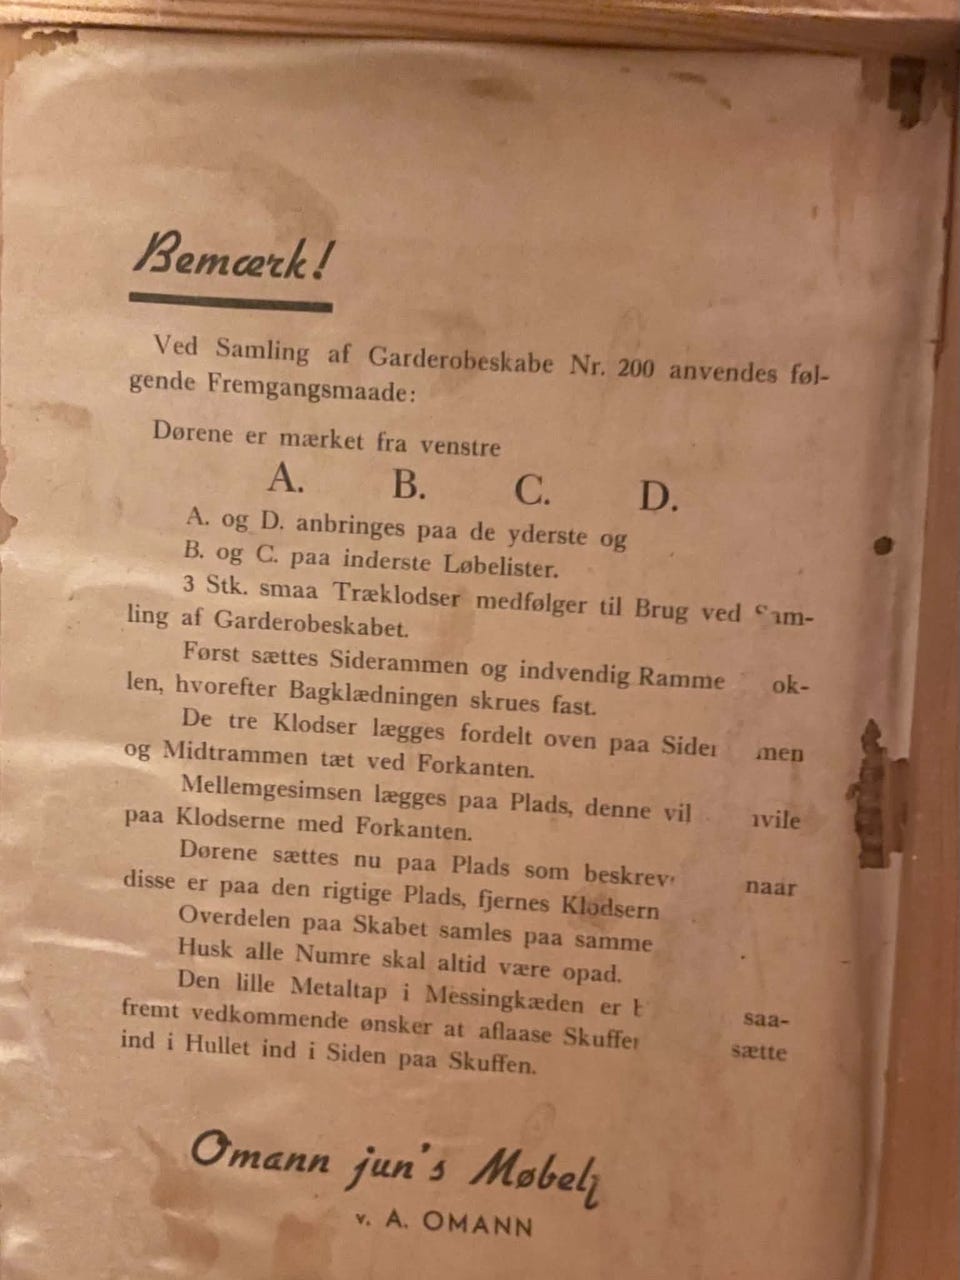 Bemærk!
Ved Samling af Garderobeskabe Nr. 200 anvendes føl-
gende Fremgangsmaade:
Dørene er mærket fra venstre
A. B. C. D.
A. og D. anbringes paa de yderste og
B. og C. paa inderste Løbelister.
3 Stk. smaa Træklodser medfølger til Brug ved
ling af Garderobeskabet.
Først sættes Siderammen og indvendig Ramme ok-
len, hvorefter Bagklædningen skrues fast.
De tre Klodser lægges fordelt oven paa men
og Midtrammen tæt ved Forkanten.
Mellemgesimsen lægges paa Plads, denne vil
paa Klodserne med Forkanten.
Dørene sættes nu paa Plads som naar
disse er paa den rigtige Plads, fjernes Klodsern
Overdelen paa Skabet samles paa samme
Husk alle Numre skal altid være opad.
Den lille Metaltap i Messingkæden er saa-
fremt vedkommende ønsker at aflaase sætte
ind i Hullet ind i Siden paa Skuffen.
Omann jun's
v. A. OMANN